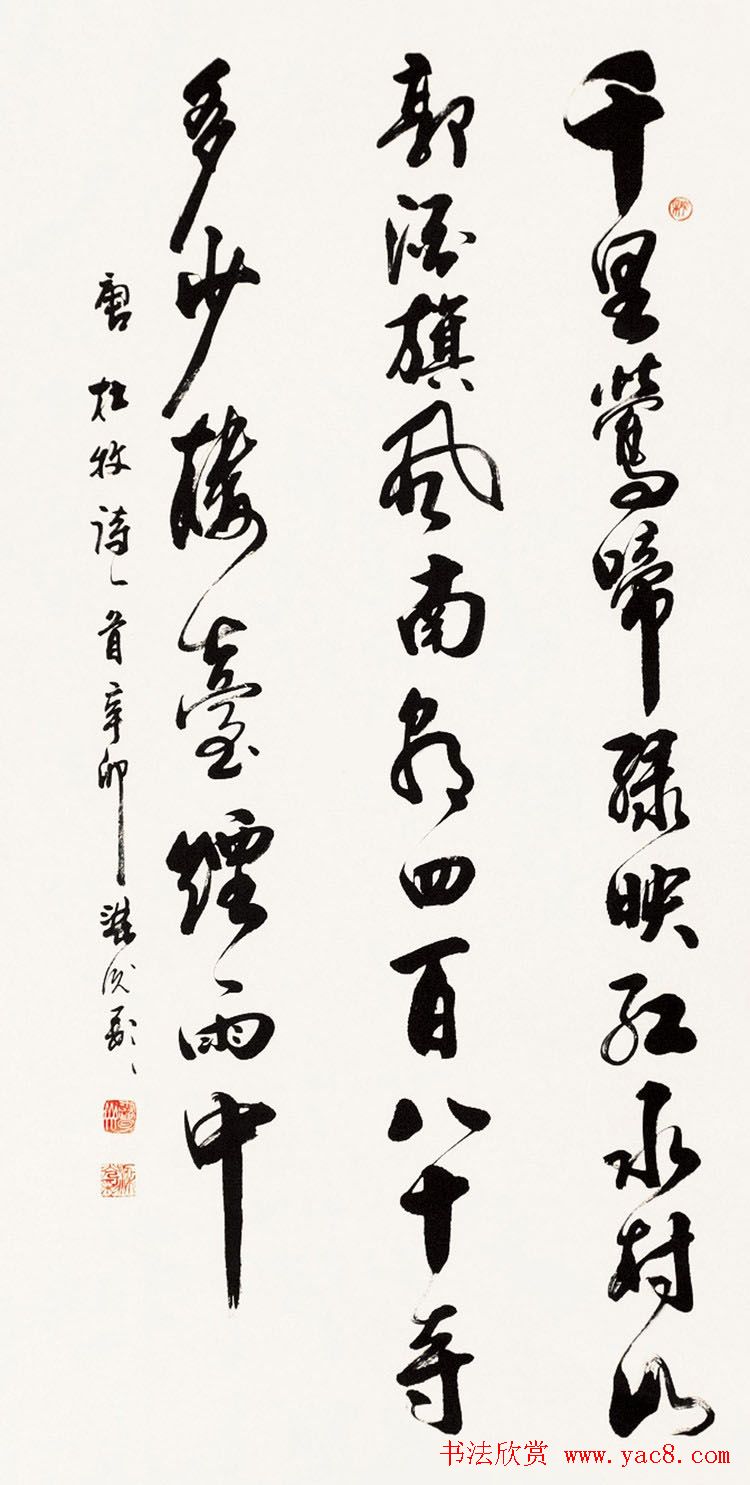 千里鶯啼绿映红水村山
郭酒旗风南朝四百八十寺
多少楼臺煙雨中
唐 杜牧诗一首辛卯
书法欣赏 www.yac8.com